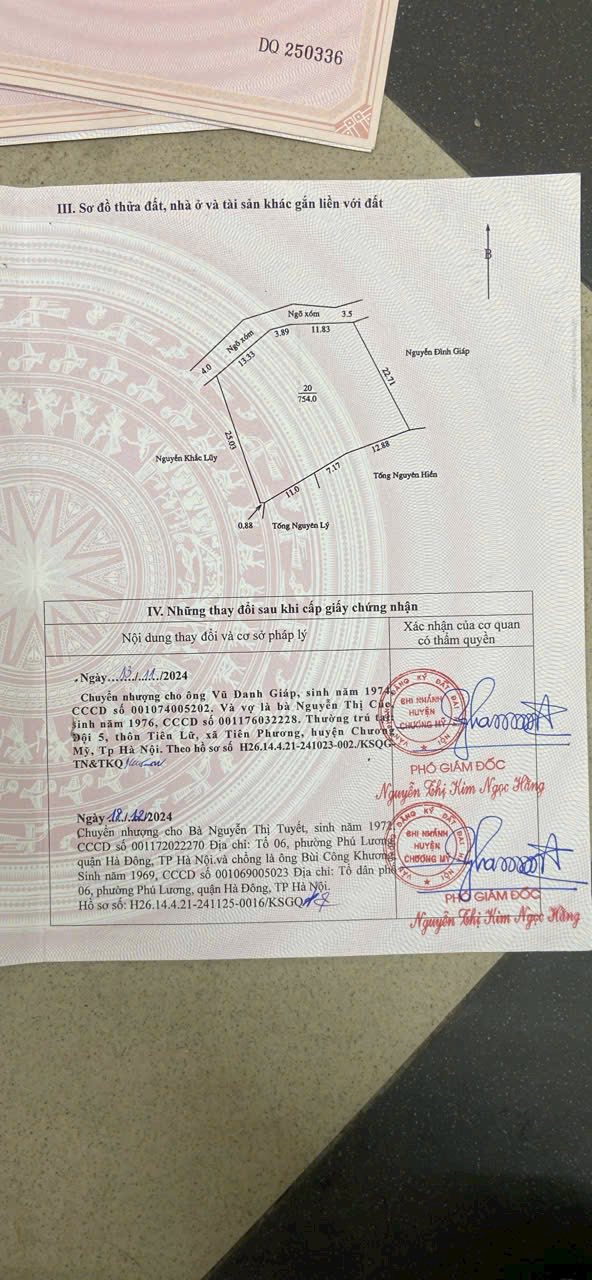 DQ 250336
III. Sơ đồ thửa đất, nhà ở và tài sản khác gắn liền với đất
B
Ngõ xóm 3.5
4.0 Ngõ xóm 3.89 11.83
13.33
Nguyễn Đình Giáp
20
754.0
22.71
25.03
Nguyễn Khắc Lũy
12.88
7.17
Tống Nguyên Hiển
11.0
0.88
Tống Nguyên Lý
IV. Những thay đổi sau khi cấp giấy chứng nhận
Nội dung thay đổi và cơ sở pháp lý
Xác nhận của cơ quan
có thẩm quyền
Ngày 13/11/2024
Chuyển nhượng cho ông Vũ Danh Giáp, sinh năm 1974
CCCD số 001074005202. Và vợ là bà Nguyễn Thị Cúc
sinh năm 1976, CCCD số 001176032228. Thường trú tại
Đội 5, thôn Tiên Lữ, xã Tiên Phương, huyện Chương
Mỹ, Tp Hà Nội. Theo hồ sơ số H26.14.4.21-241023-002./KSQG
TN&TKQ
CHI NHÁNH
HUYỆN
CHƯƠNG MỸ
PHÓ GIÁM ĐỐC
Nguyễn Thị Kim Ngọc Hằng
Ngày 18/12/2024
Chuyển nhượng cho Bà Nguyễn Thị Tuyết, sinh năm 1972
CCCD số 001172022270 Địa chỉ: Tổ 06, phường Phú Lương
quận Hà Đông, TP Hà Nội.và chồng là ông Bùi Công Khương
Sinh năm 1969, CCCD số 001069005023 Địa chỉ: Tổ dân phố
06, phường Phú Lương, quận Hà Đông, TP Hà Nội.
Hồ sơ số: H26.14.4.21-241125-0016/KSGQ
CHI NHÁNH
HUYỆN
CHƯƠNG MỸ
PHÓ GIÁM ĐỐC
Nguyễn Thị Kim Ngọc Hằng